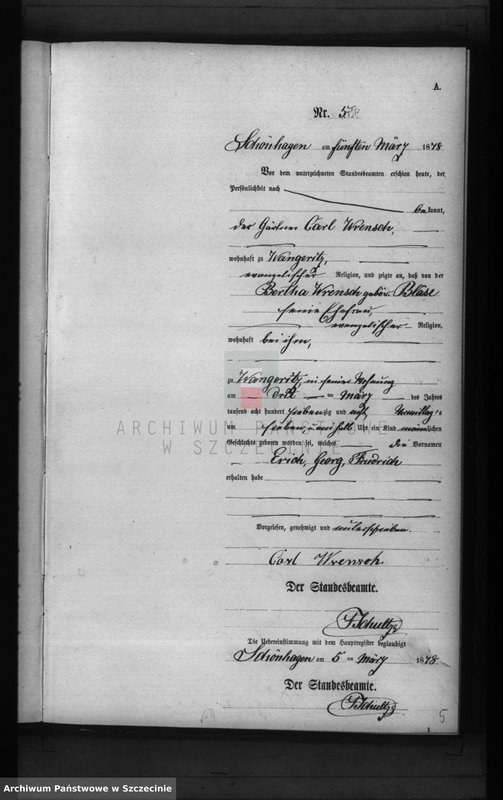 A.
Nr. 5
Schönhagen am fünften März 1878
Vor dem unterzeichneten Standesbeamten erschien heute, der
Persönlichkeit nach
bekannt,
der Gärtner Carl Wrensch,
wohnhaft zu Wangeritz,
evangelischer Religion, und zeigte an, daß von der
Bertha Wrensch gebor. Blase
seine Ehefrau,
evangelischer Religion,
wohnhaft bei ihm,
zu Wangeritz, in seiner Wohnung
am drei März des Jahres
tausend acht hundert siebenzig und acht, Vormittags
um sieben, u ein halb Uhr ein Kind männlichen
Geschlechts geboren worden sei, welches die Vornamen
Erich, Georg, Friedrich
erhalten habe
Vorgelesen, genehmigt und unterschrieben.
Carl Wrensch
Der Standesbeamte.
Schultz
Die Uebereinstimmung mit dem Hauptregister beglaubigt
Schönhagen am 5 März 1878
Der Standesbeamte.
Schultz
5
ARCHIWUM PAŃSTWOWE
W SZCZECINIE
Archiwum Państwowe w Szczecinie